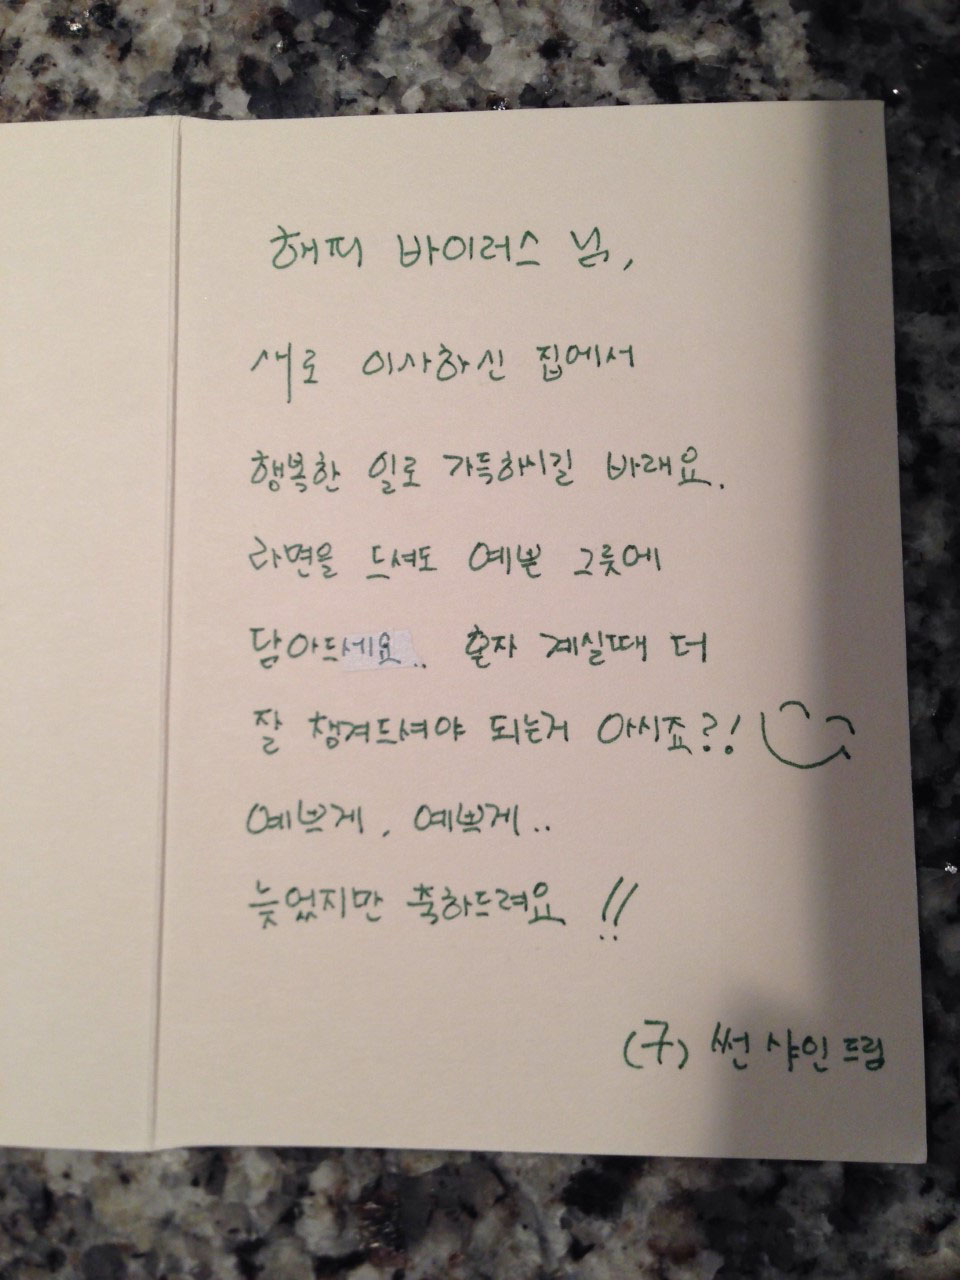 해피 바이러스 님,
새로 이사하신 집에서
행복한 일로 가득하시길 바래요.
라면을 드셔도 예쁜 그릇에
담아드세요.. 혼자 계실때 더
잘 챙겨드셔야 되는거 아시죠?!
예쁘게, 예쁘게..
늦었지만 축하드려요!!
(구) 썬샤인 드림